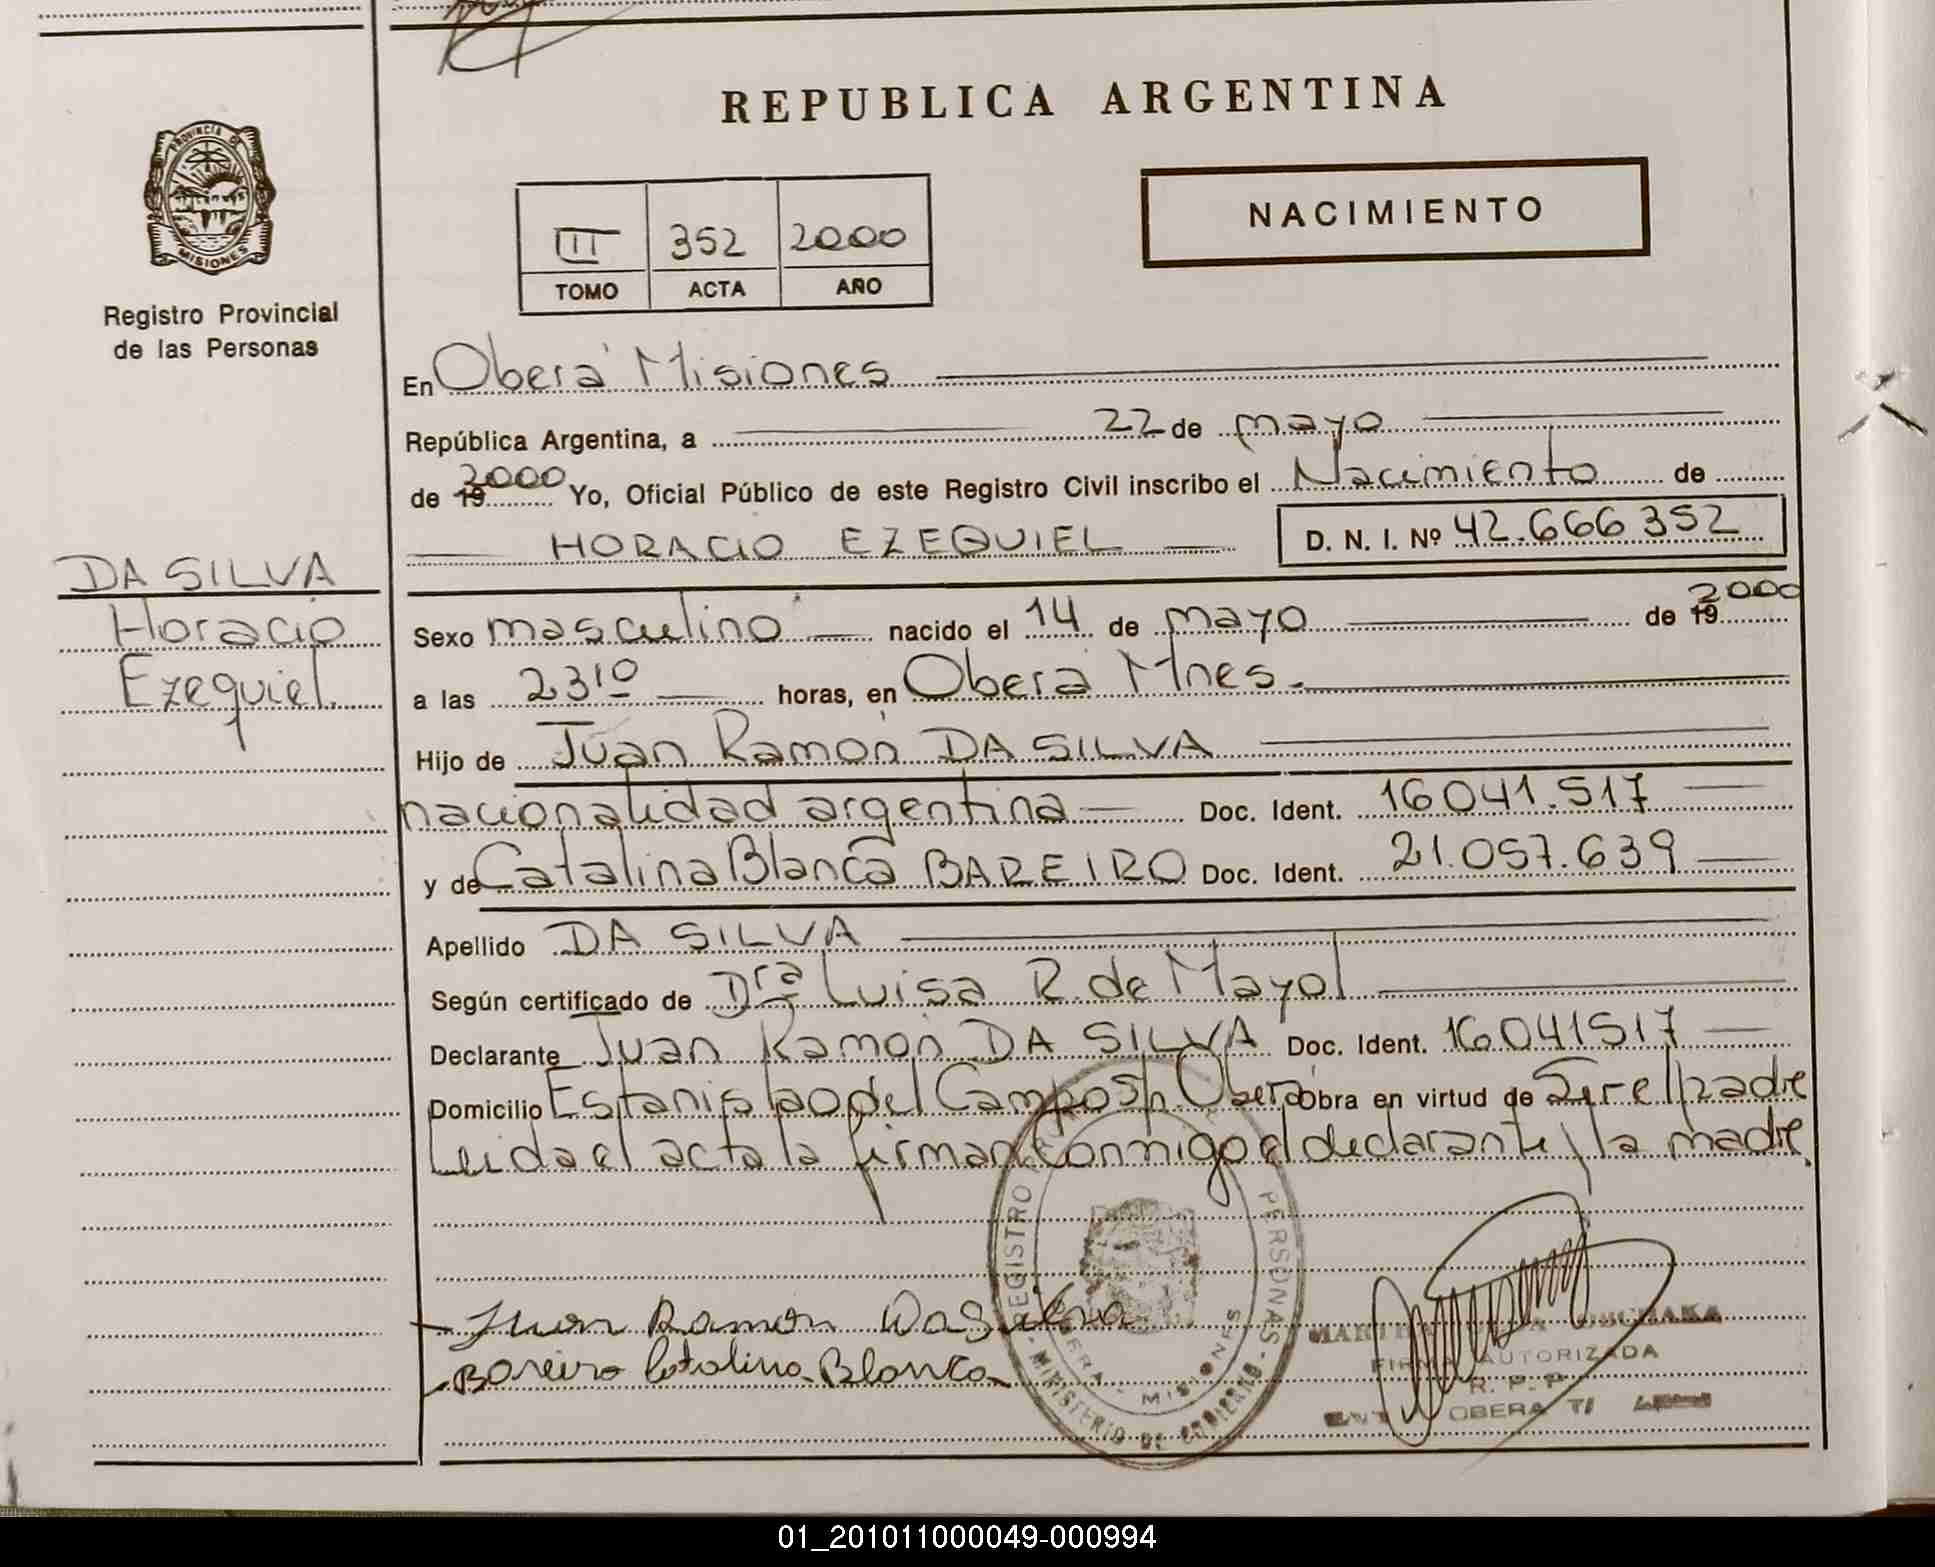 REPUBLICA ARGENTINA
PROVINCIA DE
MISIONES
Registro Provincial
de las Personas
III 352 2000
TOMO ACTA AÑO
NACIMIENTO
En Oberá Misiones
República Argentina, a 22 de mayo
de 19 2000 Yo, Oficial Público de este Registro Civil inscribo el Nacimiento de
HORACIO EZEQUIEL D. N. I. Nº 42.666352
DA SILVA
Horacio
Ezequiel.
Sexo masculino nacido el 14 de mayo de 19 2000
a las 2310 horas, en Oberá Mnes.
Hijo de Juan Ramón DA SILVA
nacionalidad argentina Doc. Ident. 16041.517
y de Catalina Blanca BAREIRO Doc. Ident. 21.057.639
Apellido DA SILVA
Según certificado de Dra Luisa R. de Mayol
Declarante Juan Ramón DA SILVA Doc. Ident. 16041517
Domicilio Estanislao del Campo s/n Oberá obra en virtud de Ser el padre
Leida el acta la firman conmigo el declarante y la madre.
Juan Ramon DaSilva
Bareiro Catalina Blanca
REGISTRO PERSONAS
OBERA - MISIONES
MINISTERIO DE GOBIERNO
FIRMA AUTORIZADA
R. P. P.
OBERA
01_201011000049-000994